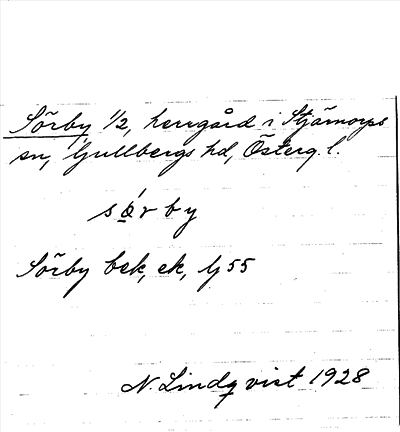 Sörby 1/2, herrgård i Stjärnorps
sn, Gullbergs hd, Österg. l.
sø̀rby
Sörby bek, ek, Gj 55
N. Lindqvist 1928